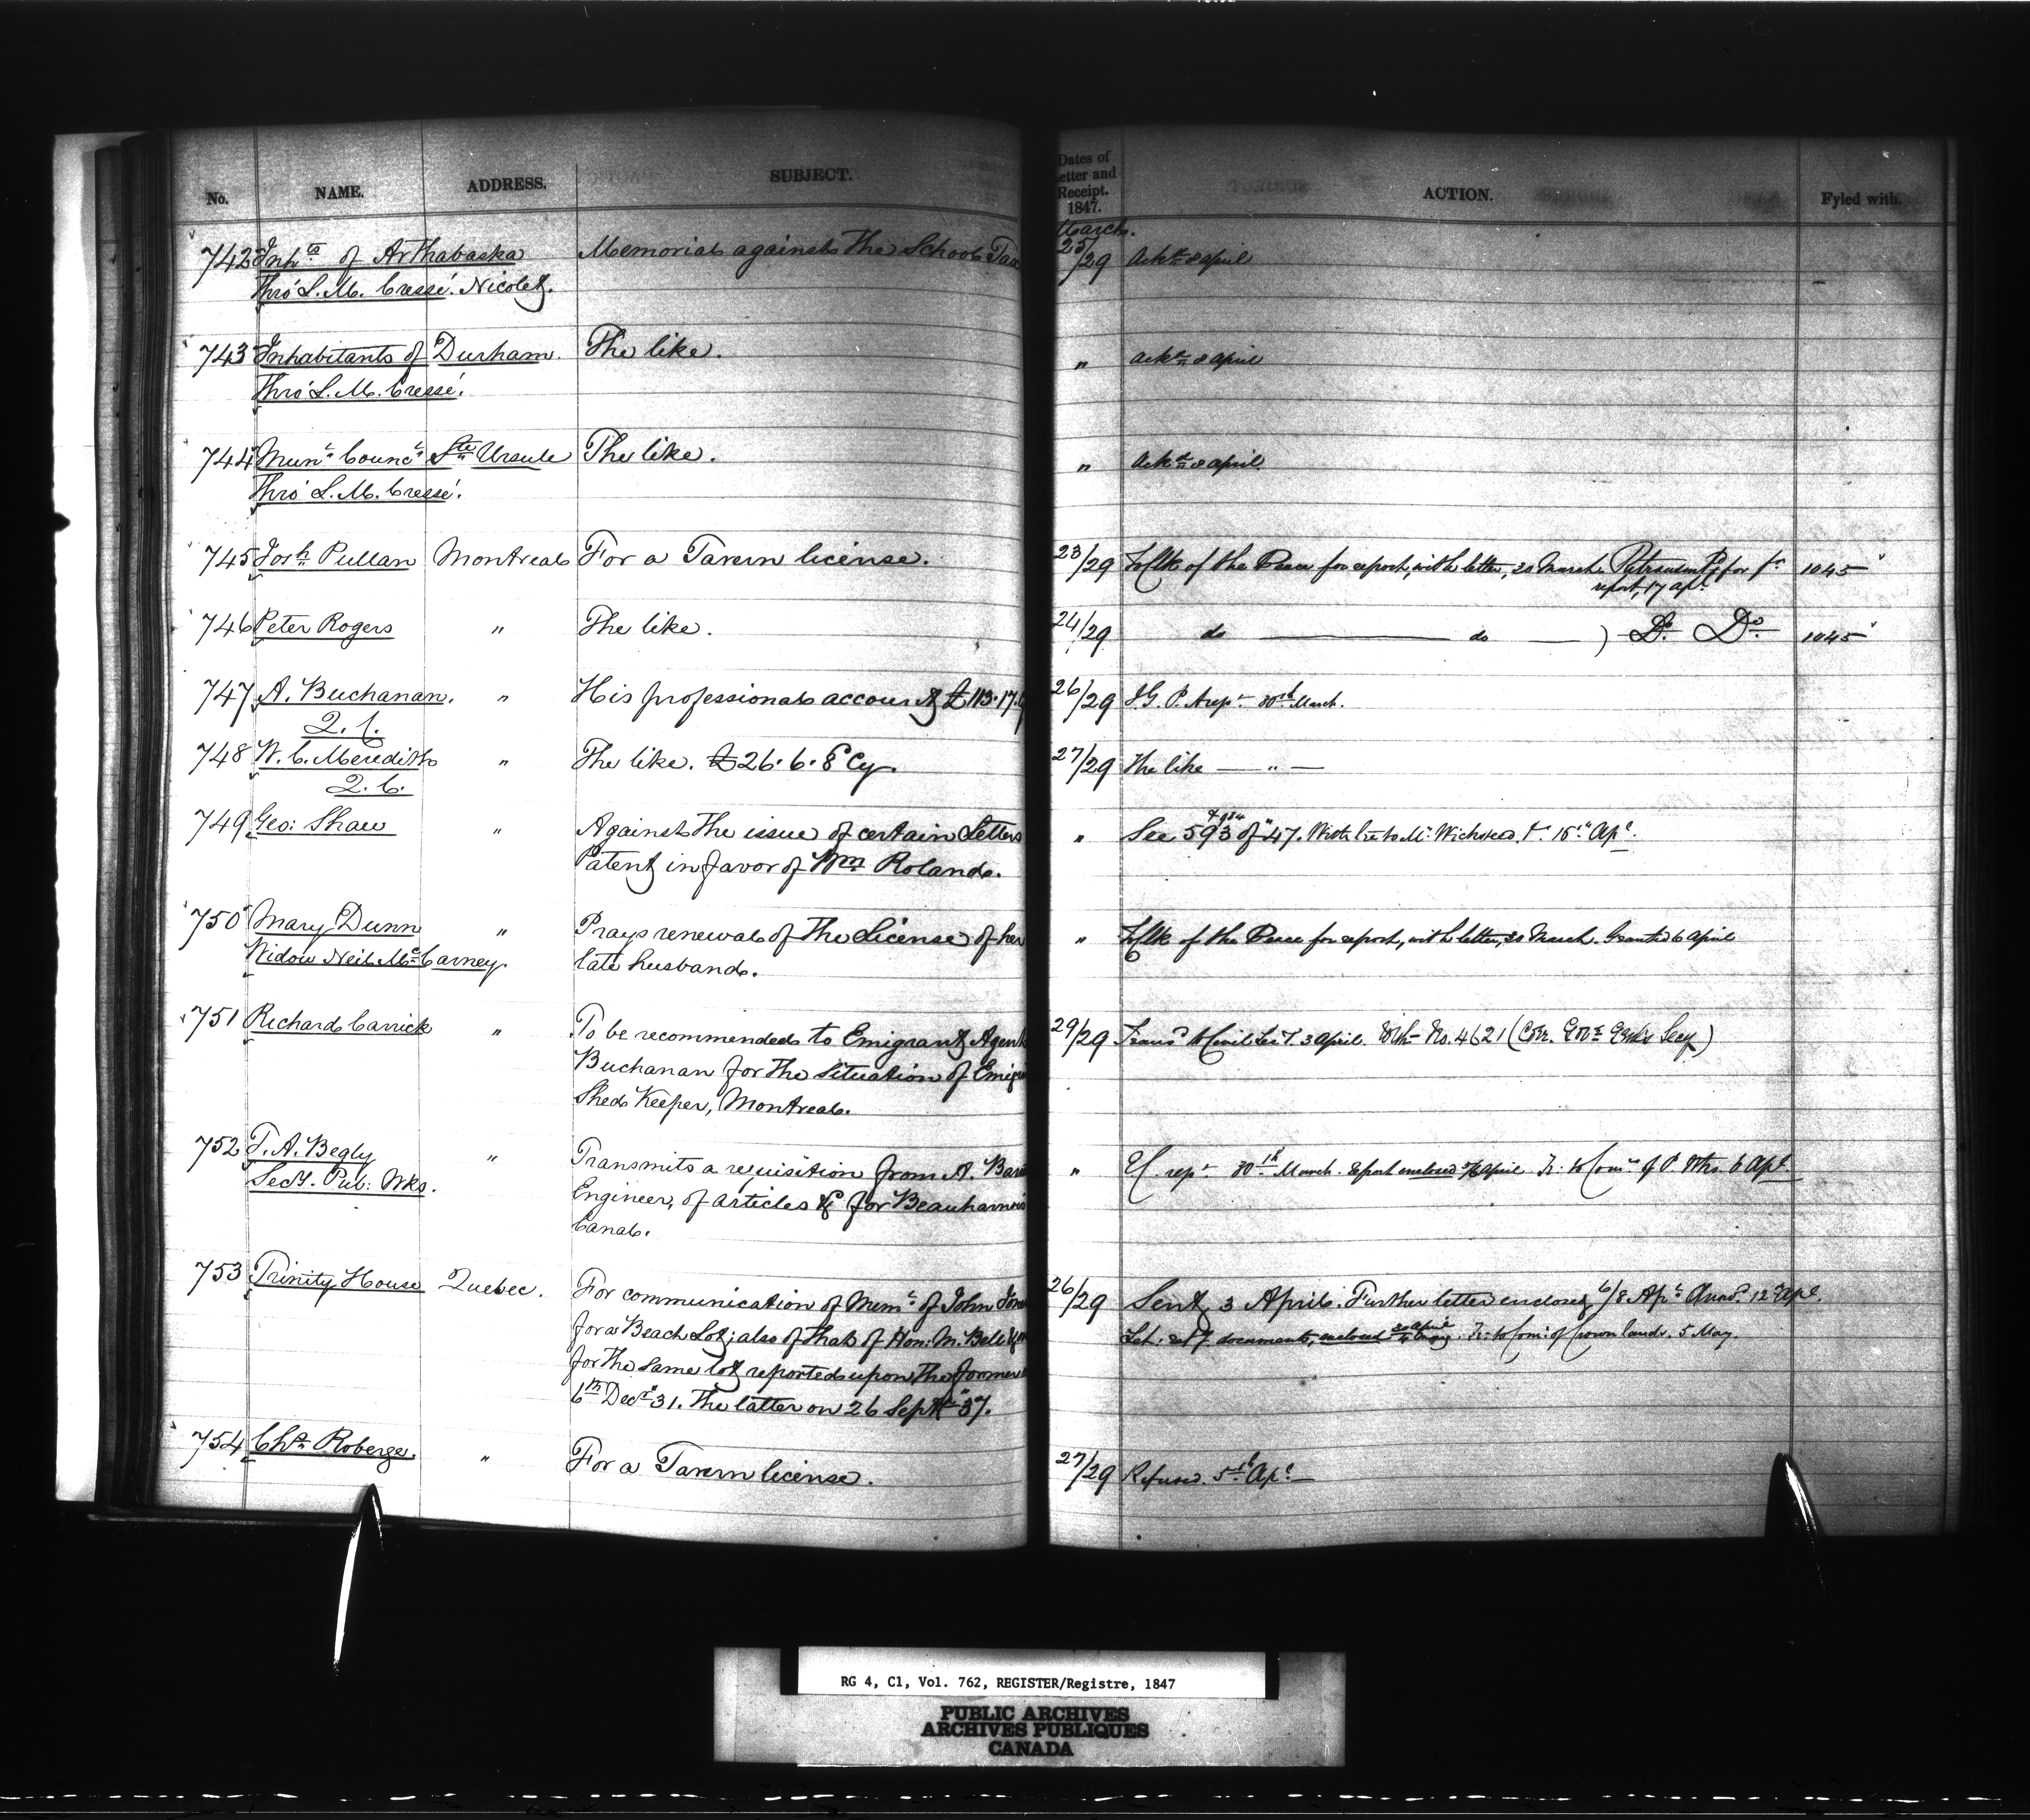 No. NAME. ADDRESS. SUBJECT. Dates of Letter and Receipt. 1847. ACTION. Fyled with.
March.
742 Inhts of Arthabaska Memorial against the School Tax 25/29 Ackd 8 april
Thro' L. M. Cressé. Nicolet.
743 Inhabitants of Durham. The like. " Ackd 8 april
Thro' L. M. Cressé.
744 Munl Councl Ste Ursule The like. " Ackd 8 april
Thro' L. M. Cressé.
745 Josh Pullan Montreal For a Tavern license. 23/29 To Clk of the Peace for report, with letter, 30 March. for 1045
report, 17 apl
746 Peter Rogers " The like. 24/29 do do ) Do. Do. 1045
747 A. Buchanan. " His professional account £113.17. 26/29 I. G. P. A rept 30th March.
Q. C.
748 W. C. Meredith " The like. £26.6.8 Cy. 27/29 The like — " —
Q. C.
749 Geo: Shaw " Against the issue of certain Letters " See 593 of 47. to Mr Wicksteed. 15th Apl.
Patent in favor of Wm Roland.
750 Mary Dunn " Prays renewal of the License of her " To Clk of the Peace for report, with letter, 30 March. Granted 6 april
Widow Neil McCarney. late husband.
751 Richard Carrick " To be recommended to Emigrant Agent 29/29 Transd to Civil Secy. 3 april. With No. 4621 (Civ. Secy)
Buchanan for the situation of
Shed Keeper, Montreal.
752 T. A. Begly " Transmits a requisition from A. " E C. rept 30th March. Report enclosed april Tr: to Comrs of P. Wks. 6 Apl.
Secy. Pub: Wks. Engineer, of articles &c for Beauharnois
Canal.
753 Trinity House Quebec. For communication of Meml of John 26/29 Sent 3 April. Further letter enclosed 6/8 Apl Ansd. 12 Apl.
for a Beach Lot; also of that of Hon: M. Bell documents, enclosed 30 april Tr: to Com: of Crown lands. 5 May.
for the same lot reported upon the former
6th Decr 31. The latter on 26 Septr 37.
754 Chs Roberge. " For a Tavern license. 27/29 Refused. 5th Apl
RG 4, C1, Vol. 762, REGISTER/Registre, 1847
PUBLIC ARCHIVES
ARCHIVES PUBLIQUES
CANADA